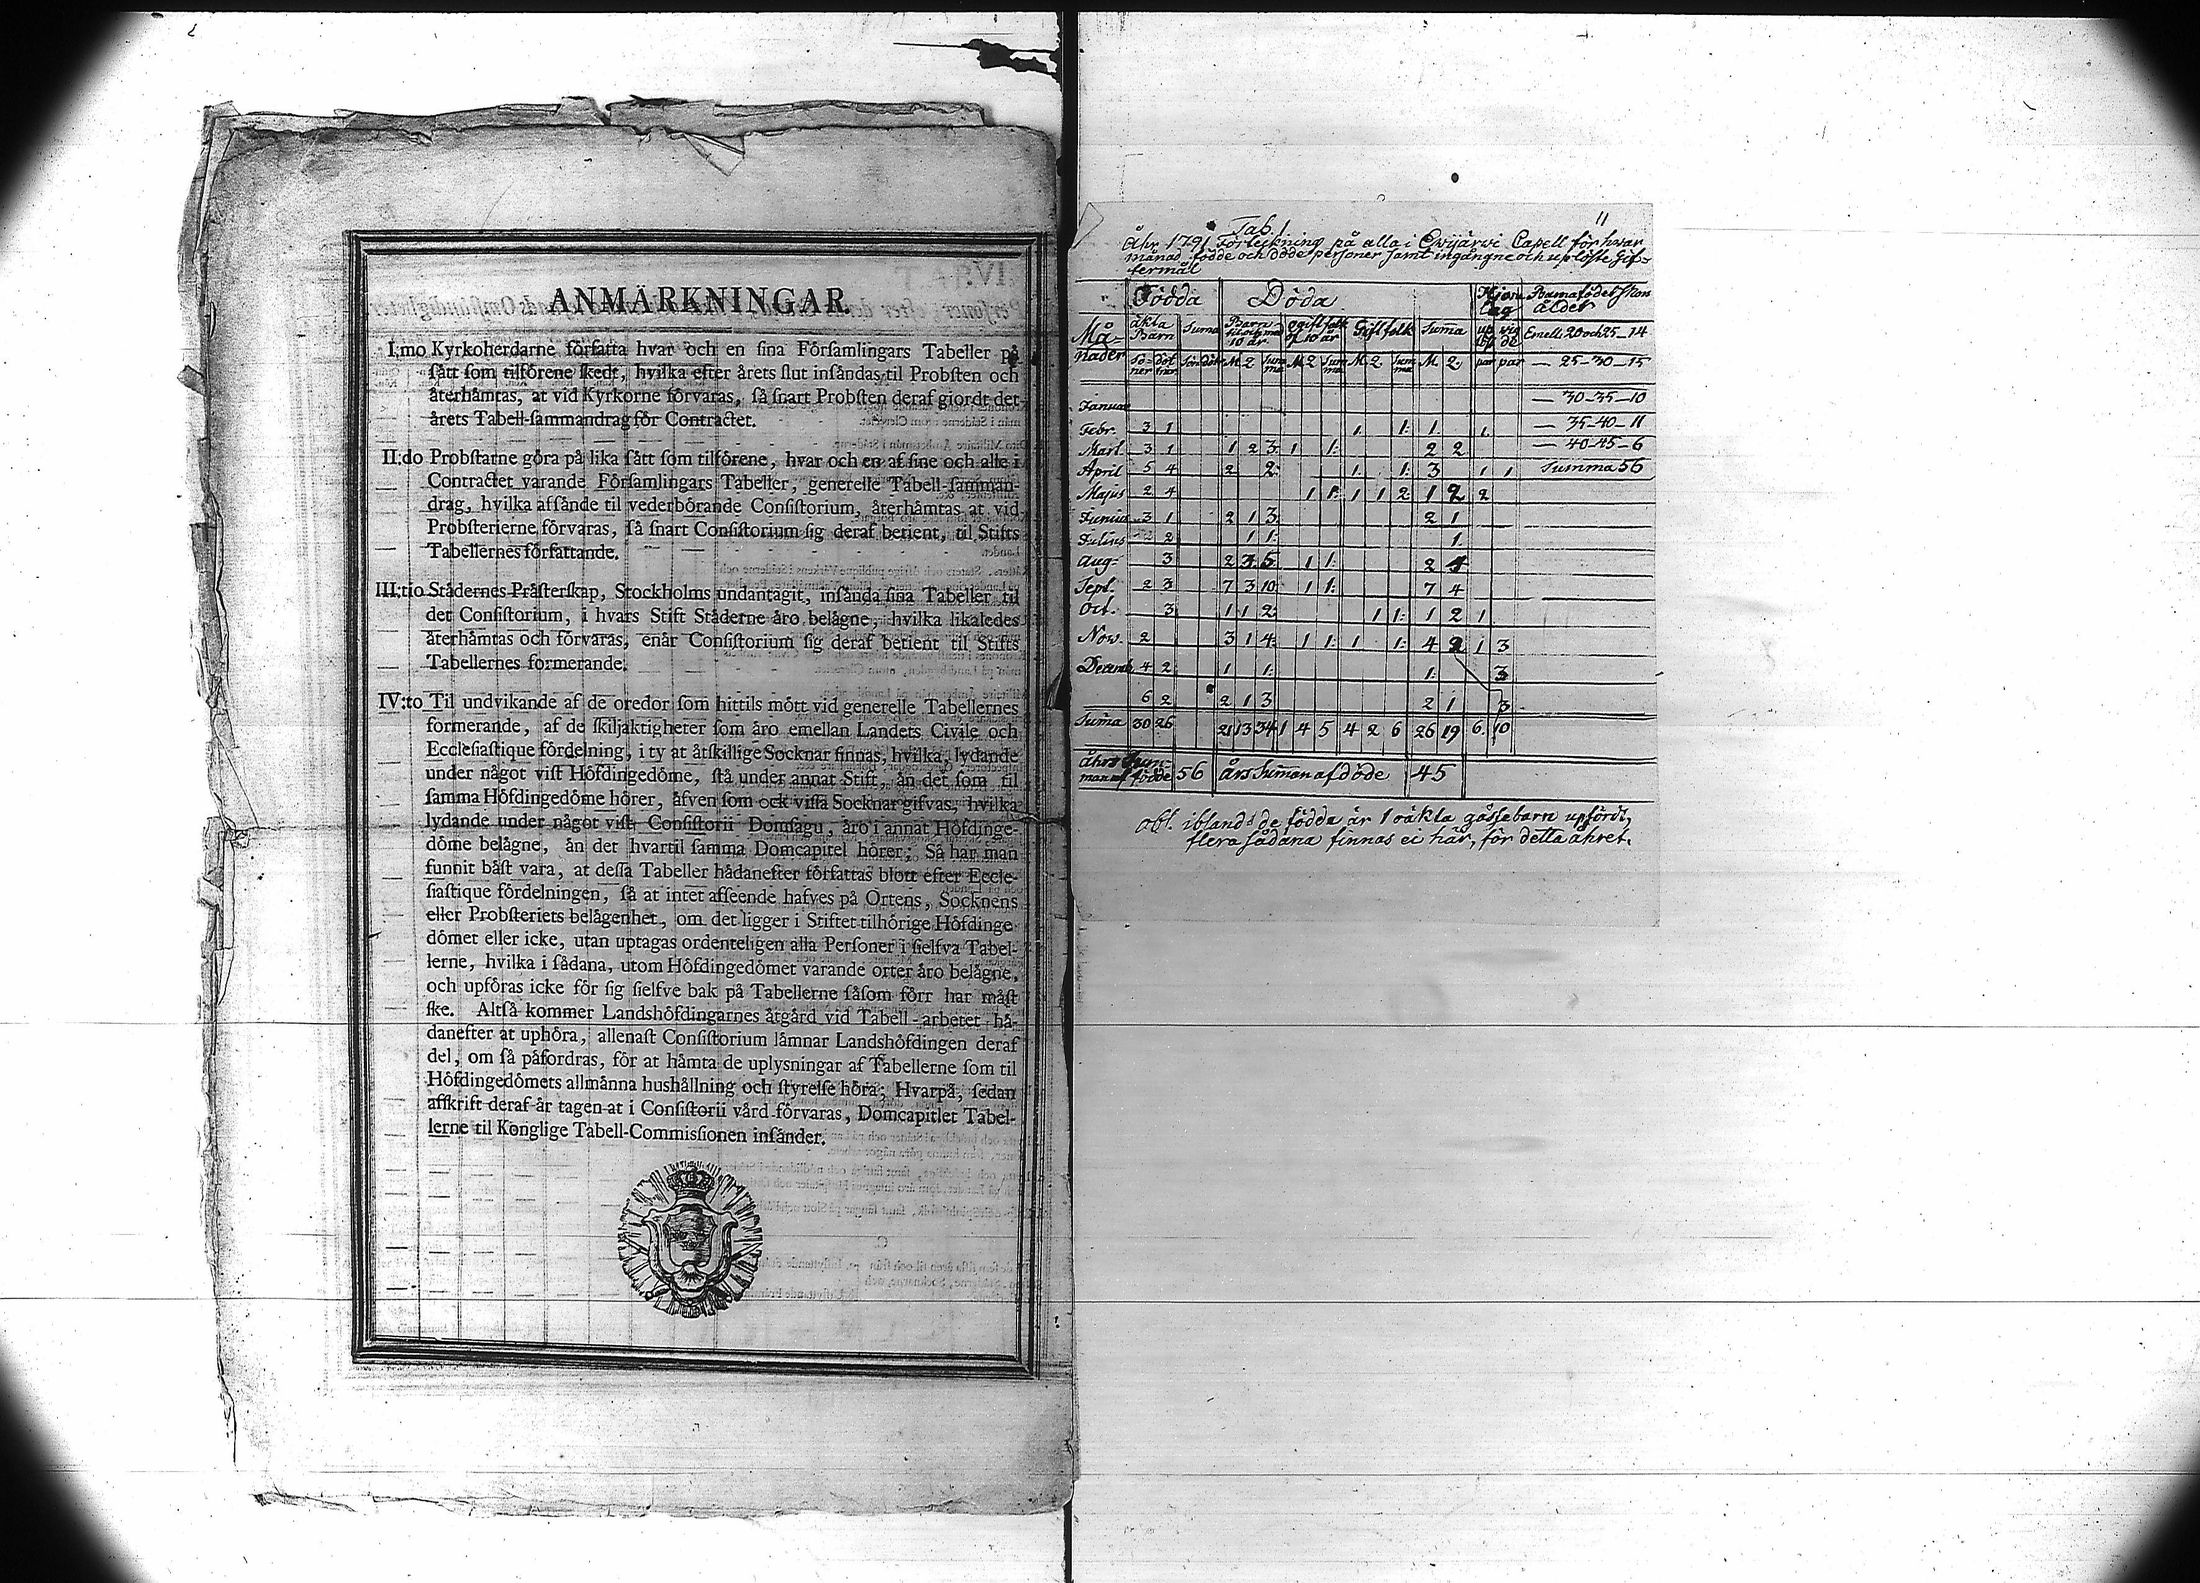 ANMÄRKNINGAR.
I:mo Kyrkoherdarne författa hvar och en sina Församlingars Tabeller på
sått som tilförene skedt, hvilka efter årets slut insåndas til Probsten och
återhåmtas, at vid Kyrkorne förvaras, så snart Probsten deraf giordt det
årets Tabell-sammandrag för Contractet.
II:do Probstarne göra på lika sått som tilförene, hvar och en af sine och alle i
Contractet varande Församlingars Tabeller, generelle Tabell-samman-
drag, hvilka afsånde til vederbörande Consistorium, återhåmtas at vid
Probsterierne förvaras, så snart Consistorium sig deraf betient, til Stifts
Tabellernes författande.
III:tio Städernes Prästerskap, Stockholms undantagit, insånda sina Tabeller til
det Consistorium, i hvars Stift Städerne åro belågne, hvilka likaledes
återhåmtas och förvaras, enår Consistorium sig deraf betient til Stifts
Tabellernes formerande.
IV:to Til undvikande af de oredor som hittils mött vid generelle Tabellernes
formerande, af de skiljaktigheter som åro emellan Landets Civile och
Ecclesiastique fördelning, i ty at åtskillige Socknar finnas, hvilka, lydande
under något vist Höfdingedöme, stå under annat Stift, ån det som til
samma Höfdingedöme hörer, åfven som ock vissa Socknar gifvas, hvilka
lydande under något vist Consistorii Domsagu, åro i annat Höfdinge-
döme belågne, ån det hvartil samma Domcapitel hörer; Så har man
funnit båst vara, at dessa Tabeller hådanefter författas blott efter Eccle-
siastique fördelningen, så at intet afseende hafves på Ortens, Socknens
eller Probsteriets belågenhet, om det ligger i Stiftet tilhörige Höfdinge-
dömet eller icke, utan uptagas ordenteligen alla Personer i sielfva Tabel-
lerne, hvilka i sådana, utom Höfdingedömet varande orter åro belågne,
och upföras icke för sig sielfve bak på Tabellerne såsom förr har måst
ske. Altså kommer Landshöfdingarnes åtgård vid Tabell-arbetet hå-
danefter at uphöra, allenast Consistorium låmnar Landshöfdingen deraf
del, om så påfordras, för at håmta de uplysningar af Tabellerne som til
Höfdingedömets allmånna hushållning och styrelse höra; Hvarpå, sedan
afskrift deraf år tagen at i Consistorii vård förvaras, Domcapitlet Tabel-
lerne til Konglige Tabell-Commissionen insånder.
11
Tab. 1
Åhr 1791 Förteckning på alla i Capell för hwar
månad födde och döde personer samt ingångne och uplöste Gif-
termål
Födda Döda
Må-
nader
äkta Barn Suma ogift folk Gift folk Suma Emell. 20 och 25 – 14
M. 2 M. 2 M. 2 M. 2 par par — 25–30–15
Januar — 30–35–10
Febr. 3 1 1. 1. 1. 1. — 35–40–11
Mart. 3 1 1 2 3. 1 1. 2 2 — 40–45–6
April 5 4 2 2. 1. 1. 3 1 1 Summa 56
Majus 2 4 1 1. 1 1 2 1 2 2
Junius 3 1 2 1 3. 2 1
Julius 2 1 1. 1.
Aug: 3 2 3 5. 1 1. 2
Sept. 2 3 7 3 10. 1 1. 7 4
Oct. 3 1 1 2. 1 1. 1 2 1
Now. 2 3 1 4. 1 1. 1 1. 4 2 1 3
Decemb. 4 2 1 1. 1. 3
6 2 2 1 3 2 1 3
Suma 30 26 21 13 34 1 4 5 4 2 6 26 19 6. 10
åhrs Sum-
man af födde 56 års Suman af döde 45
obs. ibland de födda är 1 oäkta gåssebarn upfördt,
flera sådana finnas ei här, för detta åhret.